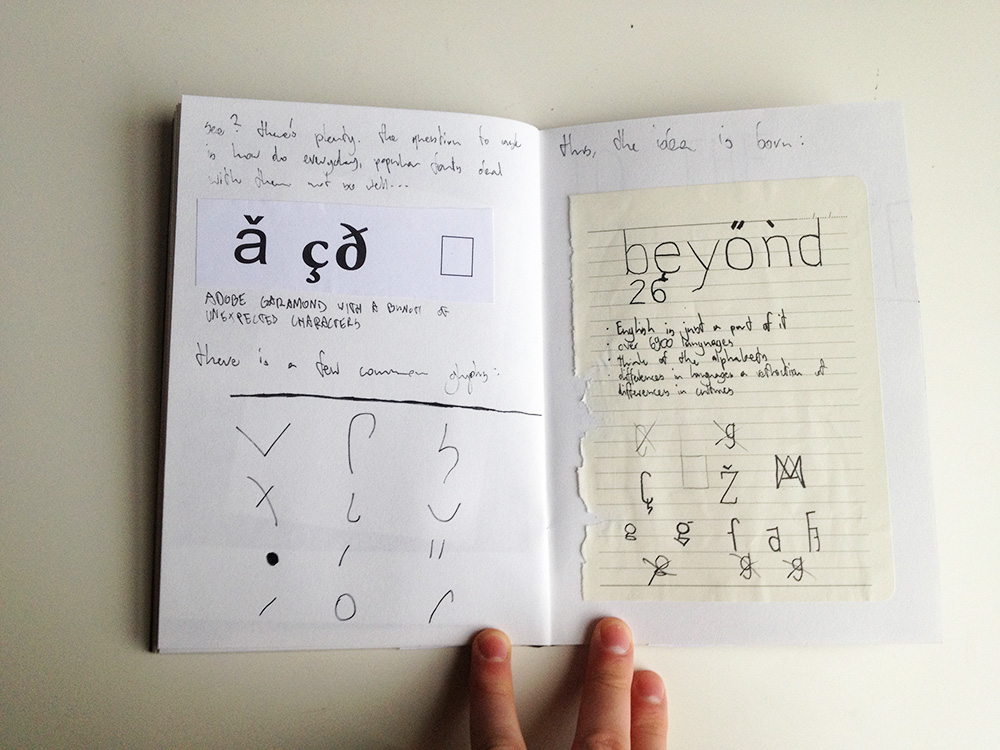 see? there's plenty. the question to ask
is how do everyday, popular fonts deal
with them not so well...
ǎ çð □
ADOBE GARAMOND WITH A BUNCH OF
UNEXPECTED CHARACTERS
there is a few common glyphs:
thus, the idea is born:
bȩyőǹd
26
· English is just a part of it
· over 6900 languages
· think of the alphabets
· differences in languages a reflection of
differences in cultures
g
ç Ž
g ğ f a
g g g